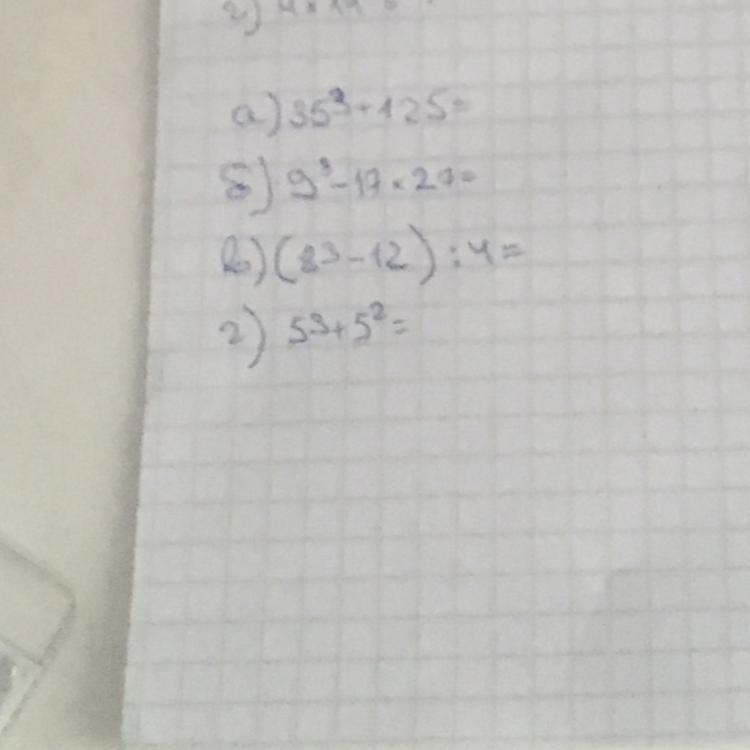 а) 35³+125=
б) 9³-17×27=
в) (8³-12):4=
г) 5³+5²=